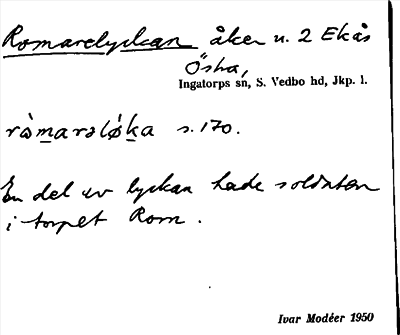 Romarelyckan åker u. 2 Ekås
Östra,
Ingatorps sn, S. Vedbo hd, Jkp. l.
ròmarəlø̀ka s. 170.
En del av lyckan hade soldaten
i torpet Rom.
Ivar Modéer 1950